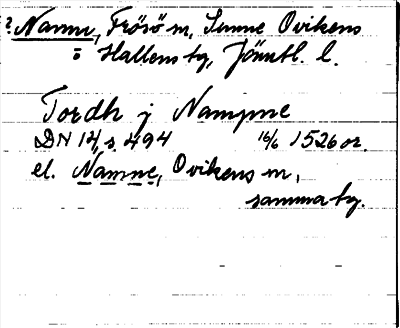 ? Namn, Frösö m, Sunne Ovikens
o Hallens tg, Jämtl. l.
Tordh j Nampne
DN 14, s. 494 16/6 1526 or.
el. Namne, Ovikens m,
samma tg.